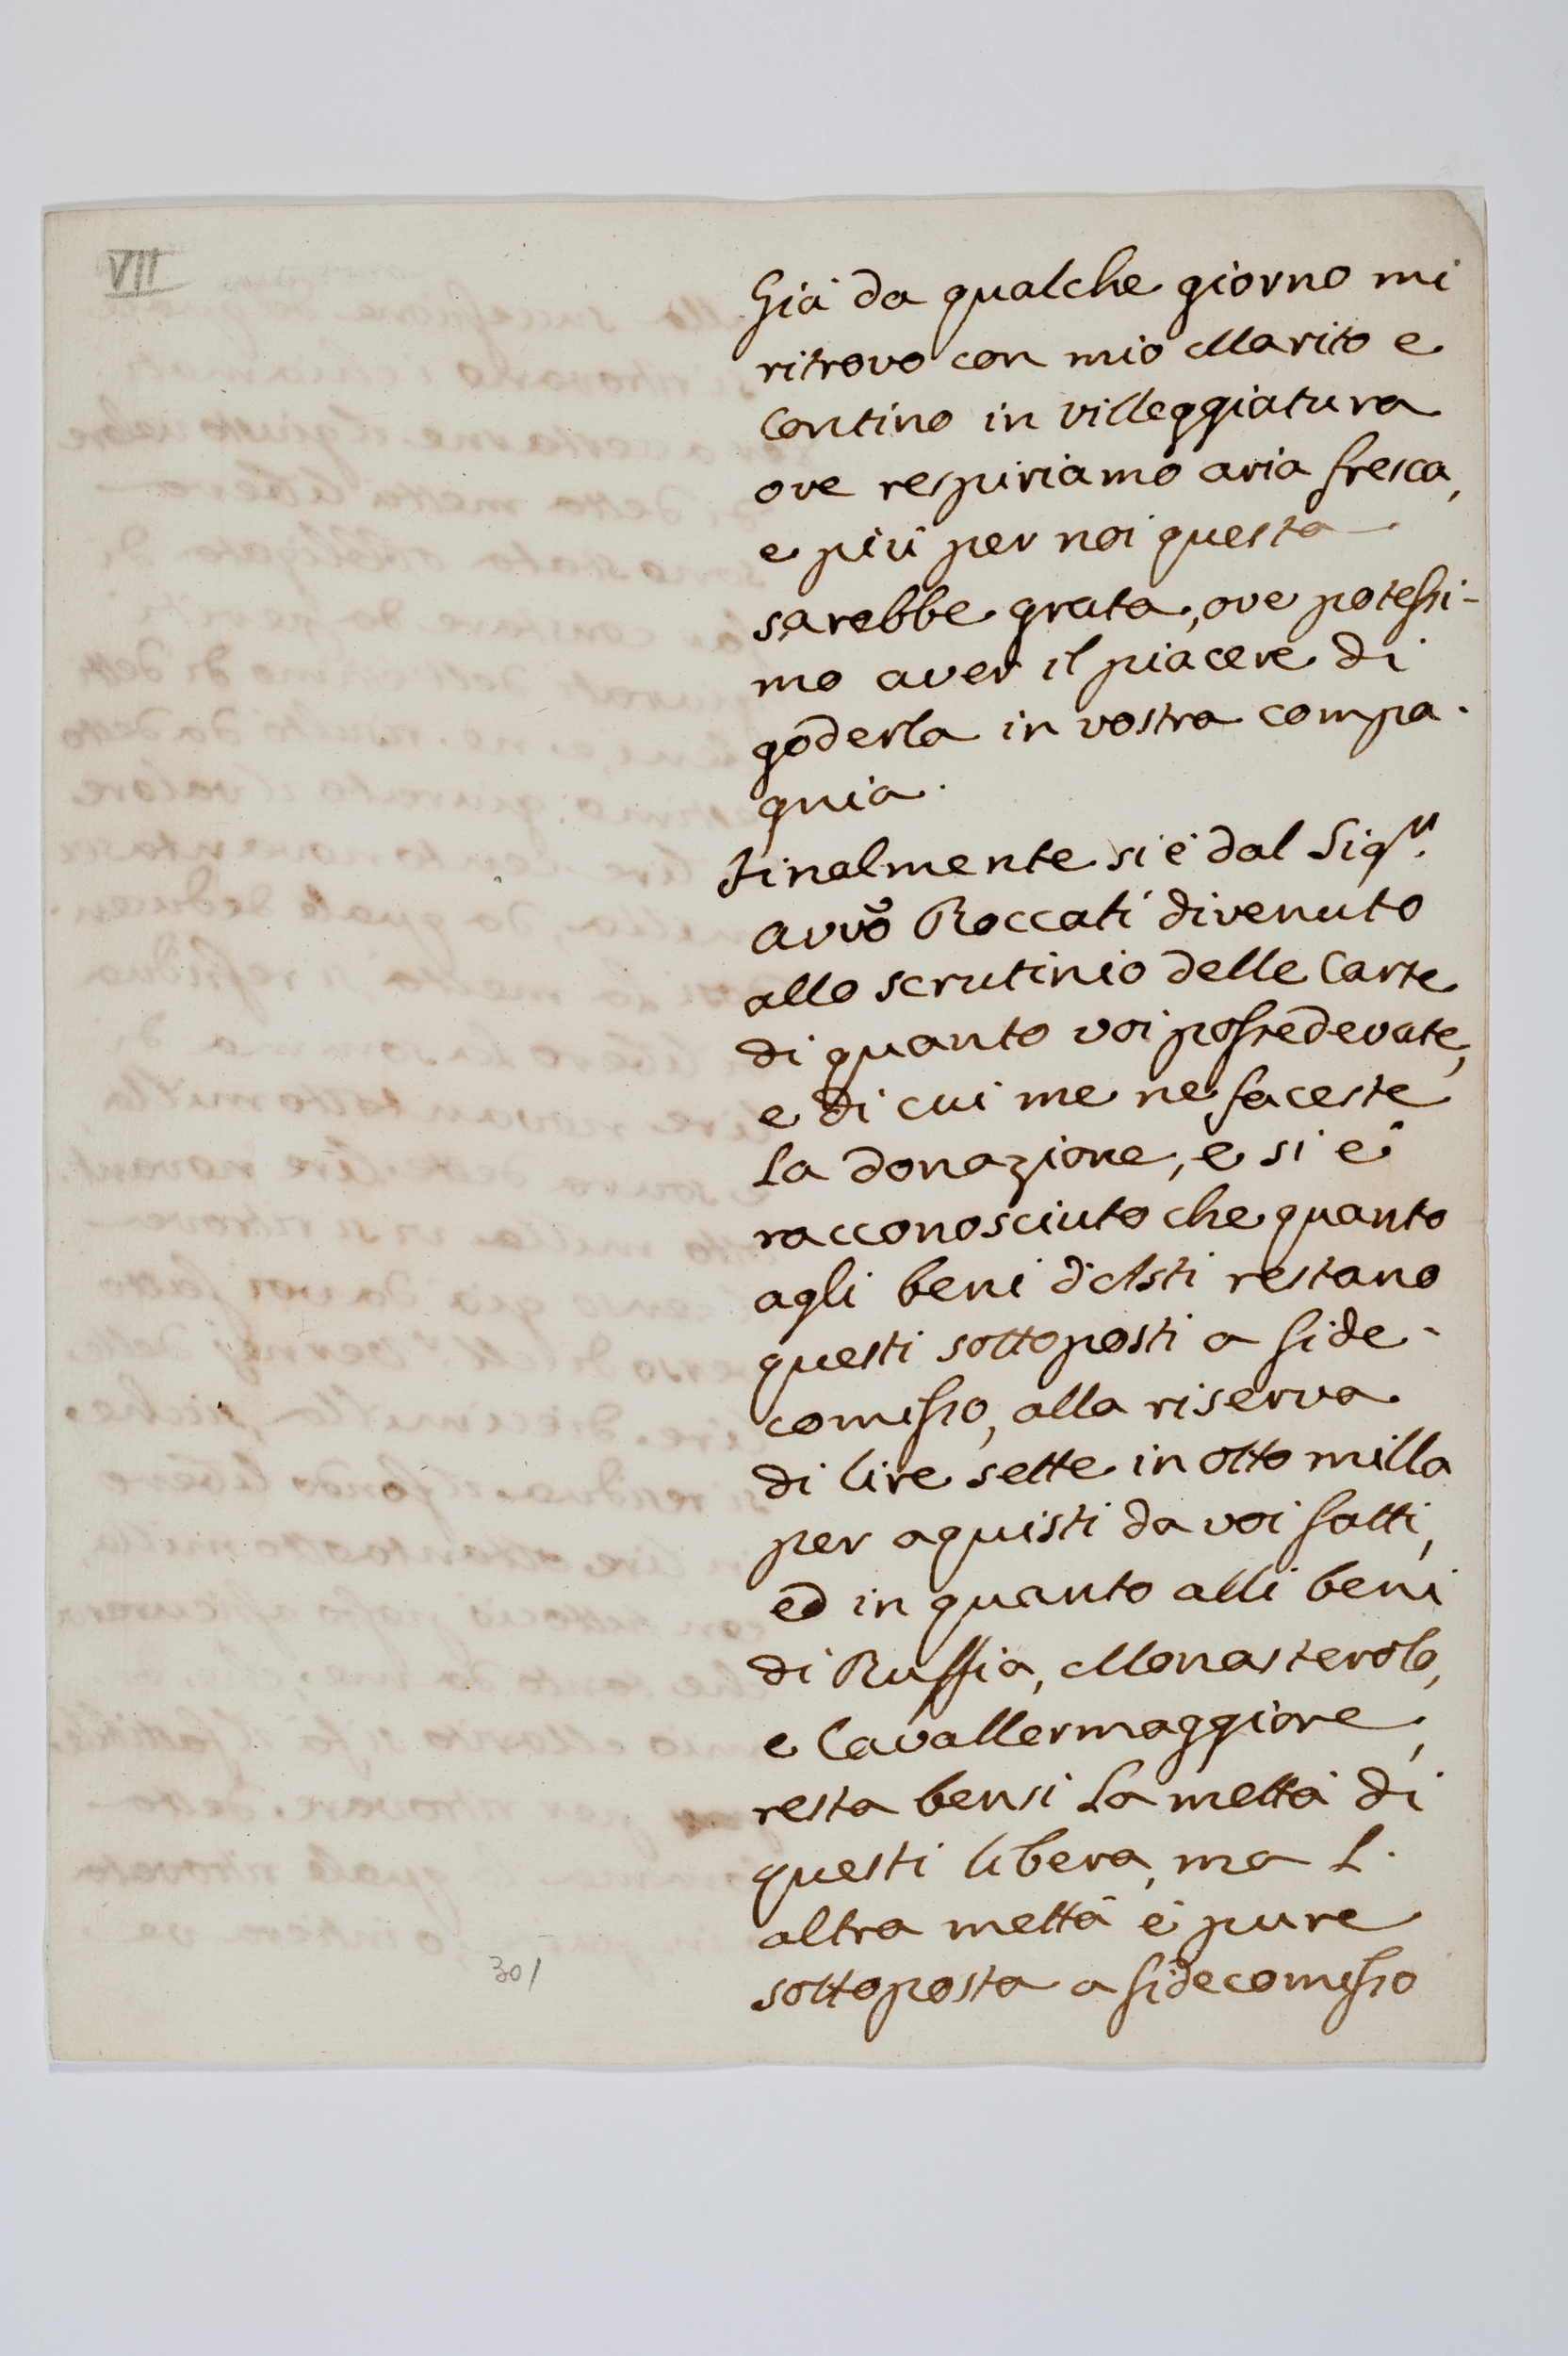 VII
Già da qualche giorno mi
ritrovo con mio Marito e
Contino in villeggiatura
ove respiriamo aria fresca,
e più per noi questa
sarebbe grata, ove potessi-
mo aver il piacere di
goderla in vostra compa-
gnia.
Finalmente si è dal Sigr.
Avvo Roccati divenuto
allo scrutinio delle Carte
di quanto voi possedevate,
e di cui me ne faceste
la donazione, e si è
racconosciuto che quanto
agli beni d'Asti restano
questi sottoposti a fide-
comisso, alla riserva
di lire sette in otto milla
per aquisti da voi fatti,
ed in quanto alli beni
di Ruffia, Monasterolo,
e Cavallermaggiore,
resta bensi la mettà di
questi libera, ma l'
altra mettà è pure
sottoposta a fidecomisso
301